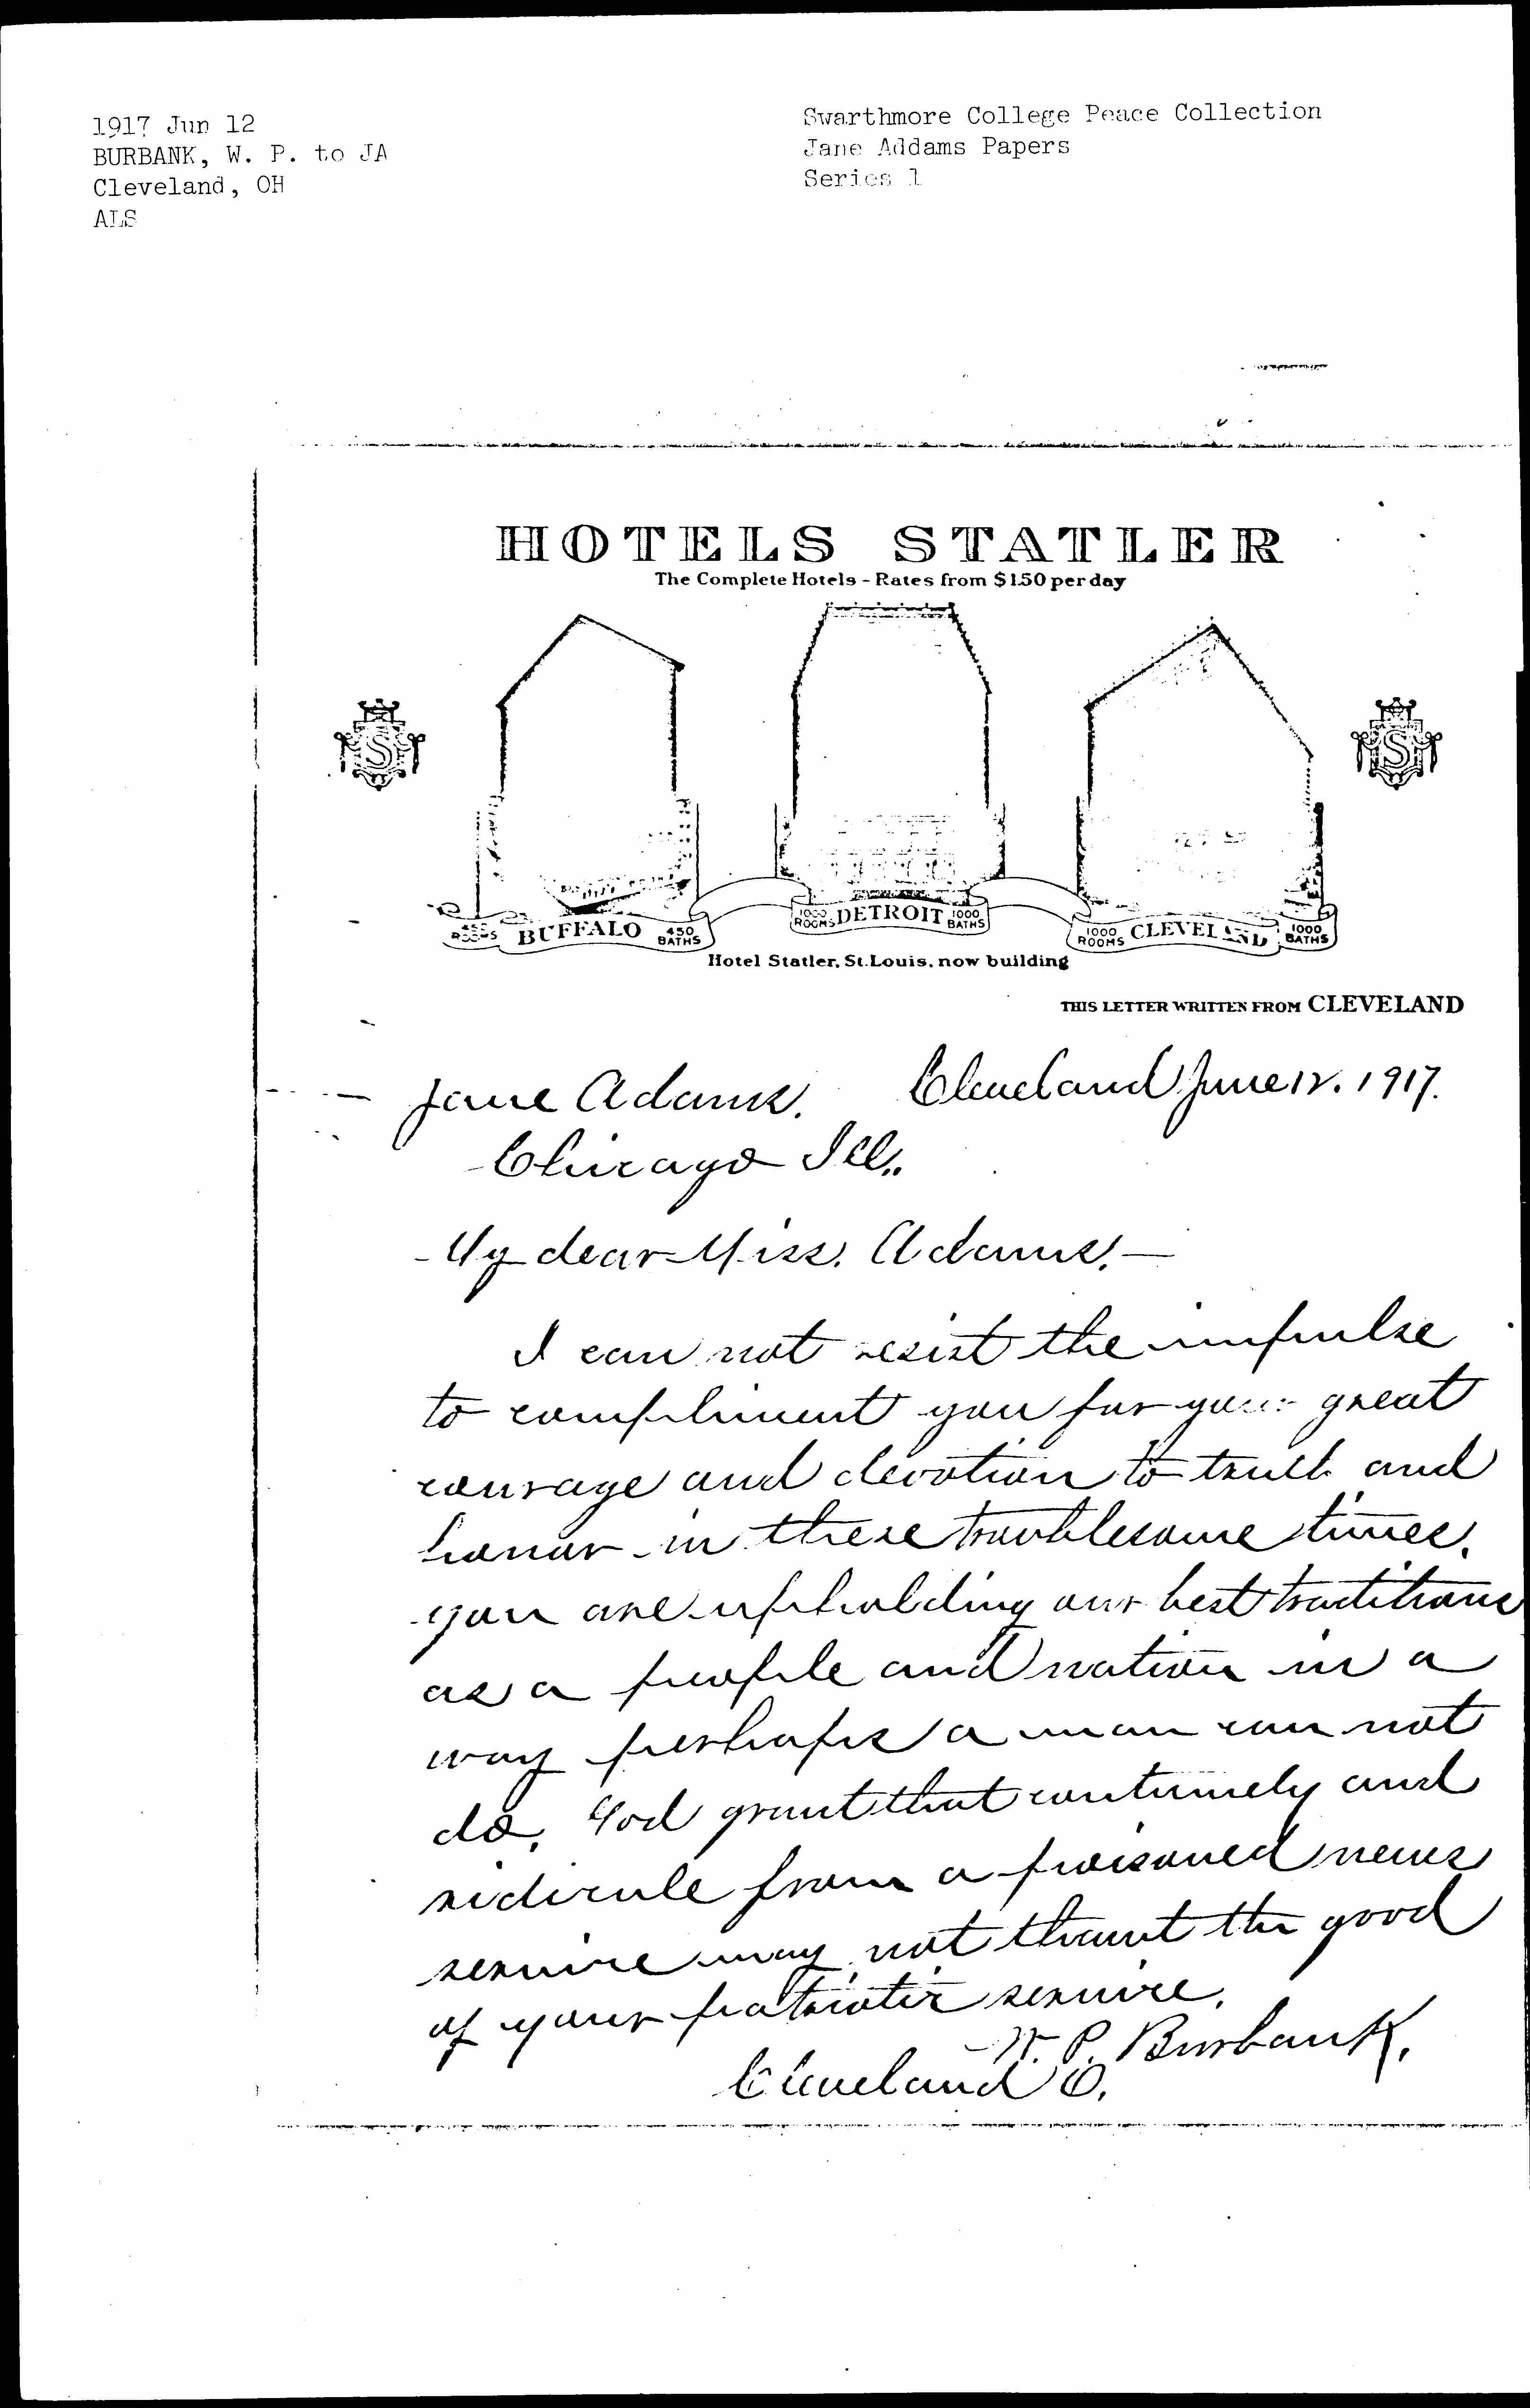 1917 Jun 12
BURBANK, W. P. to JA
Cleveland, OH
ALS
Swarthmore College Peace Collection
Jane Addams Papers
Series 1
HOTELS STATLER
The Complete Hotels - Rates from $1.50 per day
S
S
450 ROOMS BUFFALO 450 BATHS
1000 ROOMS DETROIT 1000 BATHS
1000 ROOMS CLEVELAND 1000 BATHS
Hotel Statler, St. Louis, now building
THIS LETTER WRITTEN FROM CLEVELAND
Cleveland June 12. 1917.
Jane Adams.
Chicago Ill.
My dear Miss. Adams,—
I can not resist the impulse
to compliment you for your great
courage and devotion to truth and
honor in these troublesome times.
you are upholding our best traditions
as a people and nation in a
way perhaps a man can not
do. God grant that contumely and
ridicule from a poisoned news
service may not thwart the good
of your patriotic service.
W. P. Burbank.
Cleveland O.